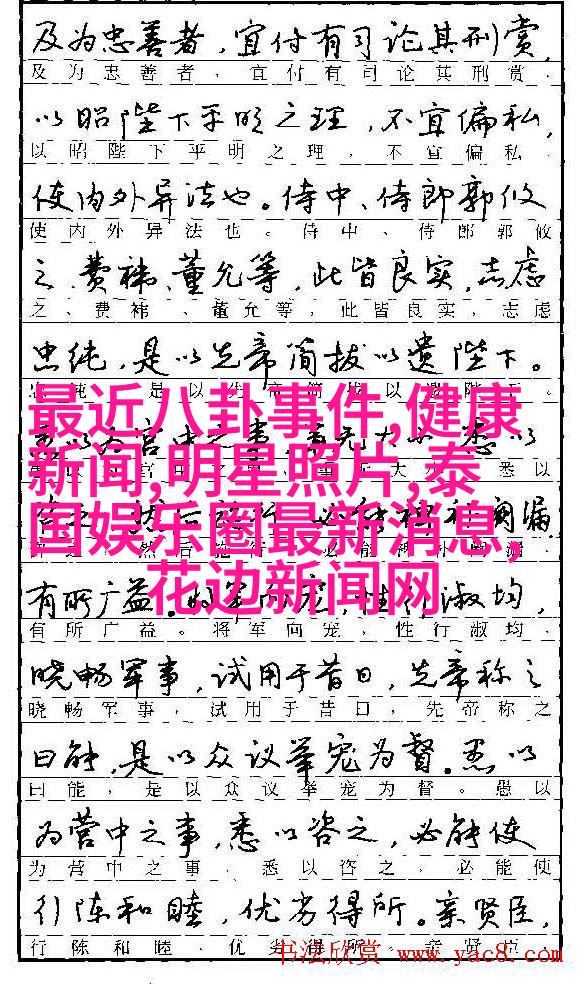 及为忠善者，宜付有司论其刑赏，
及为忠善者，宜付有司论其刑赏．
以昭陛下平明之理，不宜偏私，
以昭陛下平明之理，不宜偏私．
使内外异法也。侍中、侍郎郭攸
使内外异法也。侍中、侍郎郭攸
之、费祎、董允等，此皆良实，志虑
之、费祎、董允等，此皆良实，志虑
忠纯，是以先帝简拔以遗陛下。
最近八卦事件,健康
新闻,明星照片,泰
国娱乐圈最新消息,
花边新闻网
悉以
阙漏
有所广益。
有所广益。将军向宠，性行淑均．
晓畅军事，试用于昔日，先帝称之
晓畅军事，试用于昔日，先帝称之
曰能，是以众议举宠为督。愚以
曰能，是以众议举宠为督。愚以
为营中之事，悉以咨之，必能使
为营中之事．悉以咨之，必能使
行陈和睦，优劣得所。亲贤臣，
行陈和睦．优劣得所．亲贤臣．
书法欣赏 www.yac8.com